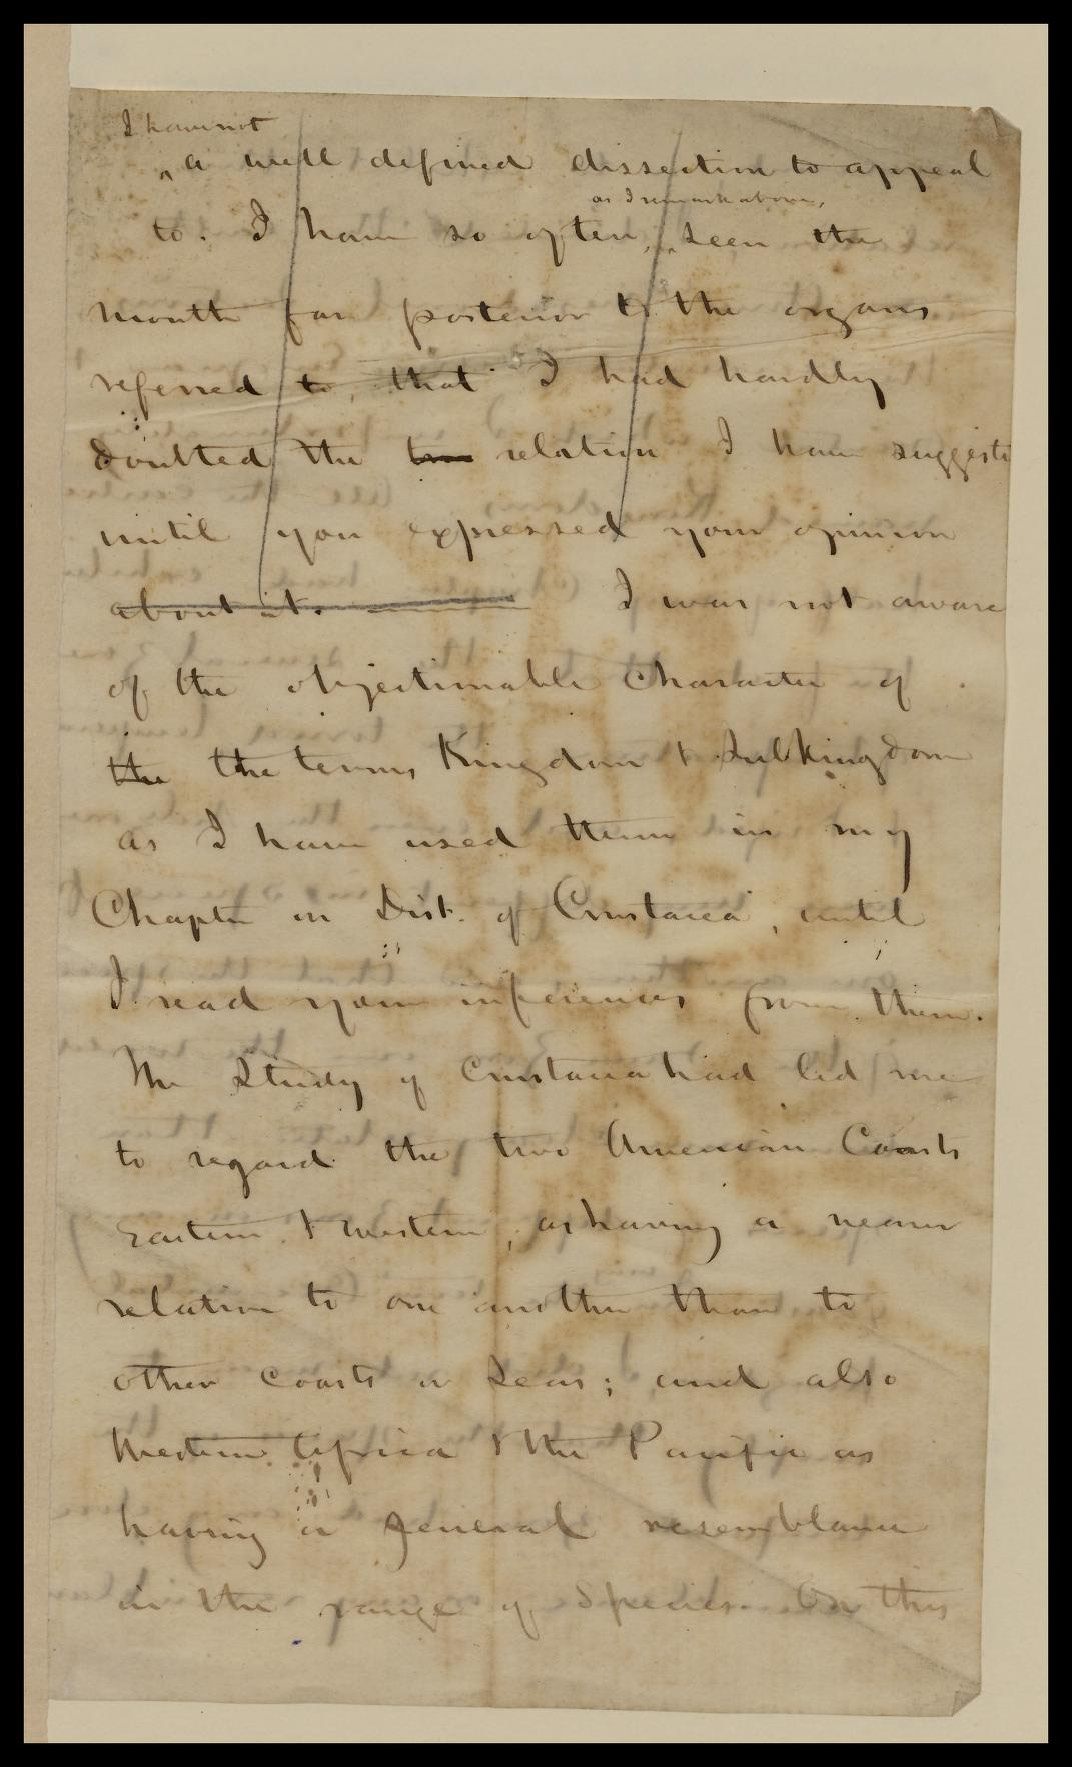 I have not
a well defined dissection to appeal
as I remark above,
to. I have so often, seen the
mouth far posterior to the organs
referred to, that I had hardly
doubted the relation I have suggeste
until you expressed your opinion
about it. I was not aware
of the objectionable character of
the the terms Kingdom & Subkingdom
as I have used them in my
Chapter on Dist. of Crustacea, until
I read your inferences from them.
The Study of Crustacea had led me
to regard the two American Coasts
Eastern & western, as having a nearer
relation to one another than to
other coasts or seas; and also
Western Africa & the Pacific as
having a general resemblance
in the range of Species. On this